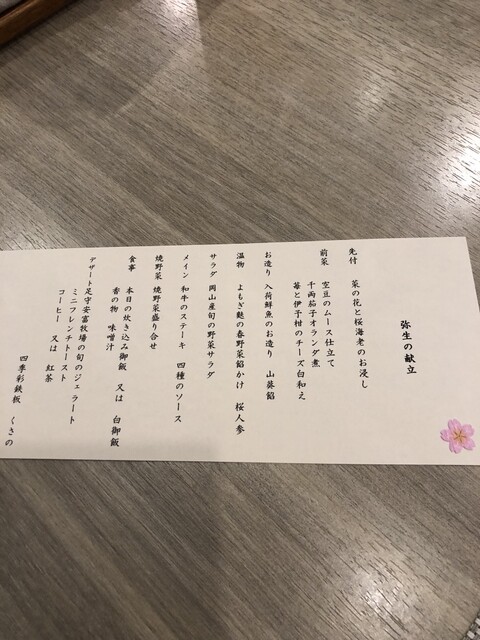 弥生の献立
先付 菜の花と桜海老のお浸し
前菜 空豆のムース仕立て
千両茄子オランダ煮
苺と伊予柑のチーズ白和え
お造り 入荷鮮魚のお造り 山葵餡
温物 よもぎ麩の春野菜餡かけ 桜人参
サラダ 岡山産旬の野菜サラダ
メイン 和牛のステーキ 四種のソース
焼野菜 焼野菜盛り合せ
食事 本日の炊き込み御飯 又は 白御飯
香の物 味噌汁
デザート 足守安富牧場の旬のジェラート
ミニフレンチトースト
コーヒー 又は 紅茶
四季彩鉄板 くさの